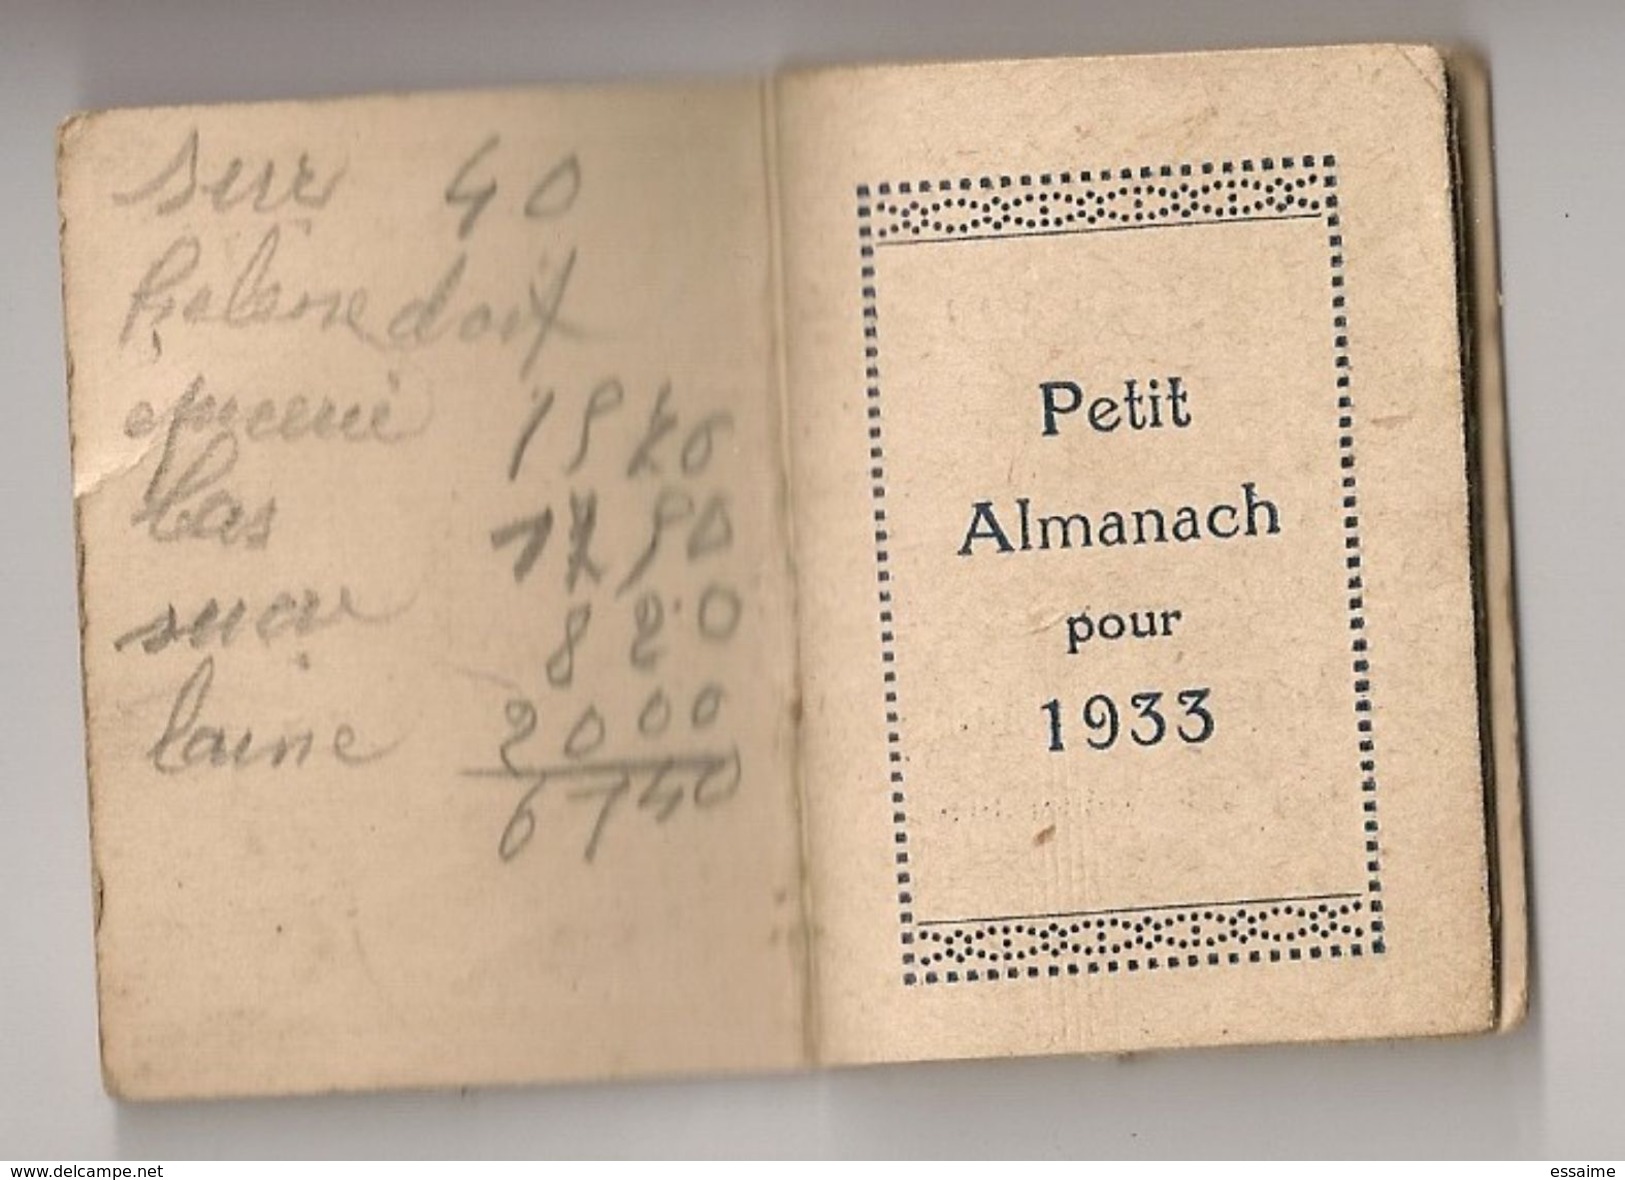 40
helene doit
epicerie
bas
sucre 8 20
laine 2000
6740
Petit
Almanach
pour
1933
www.delcampe.net
essaime